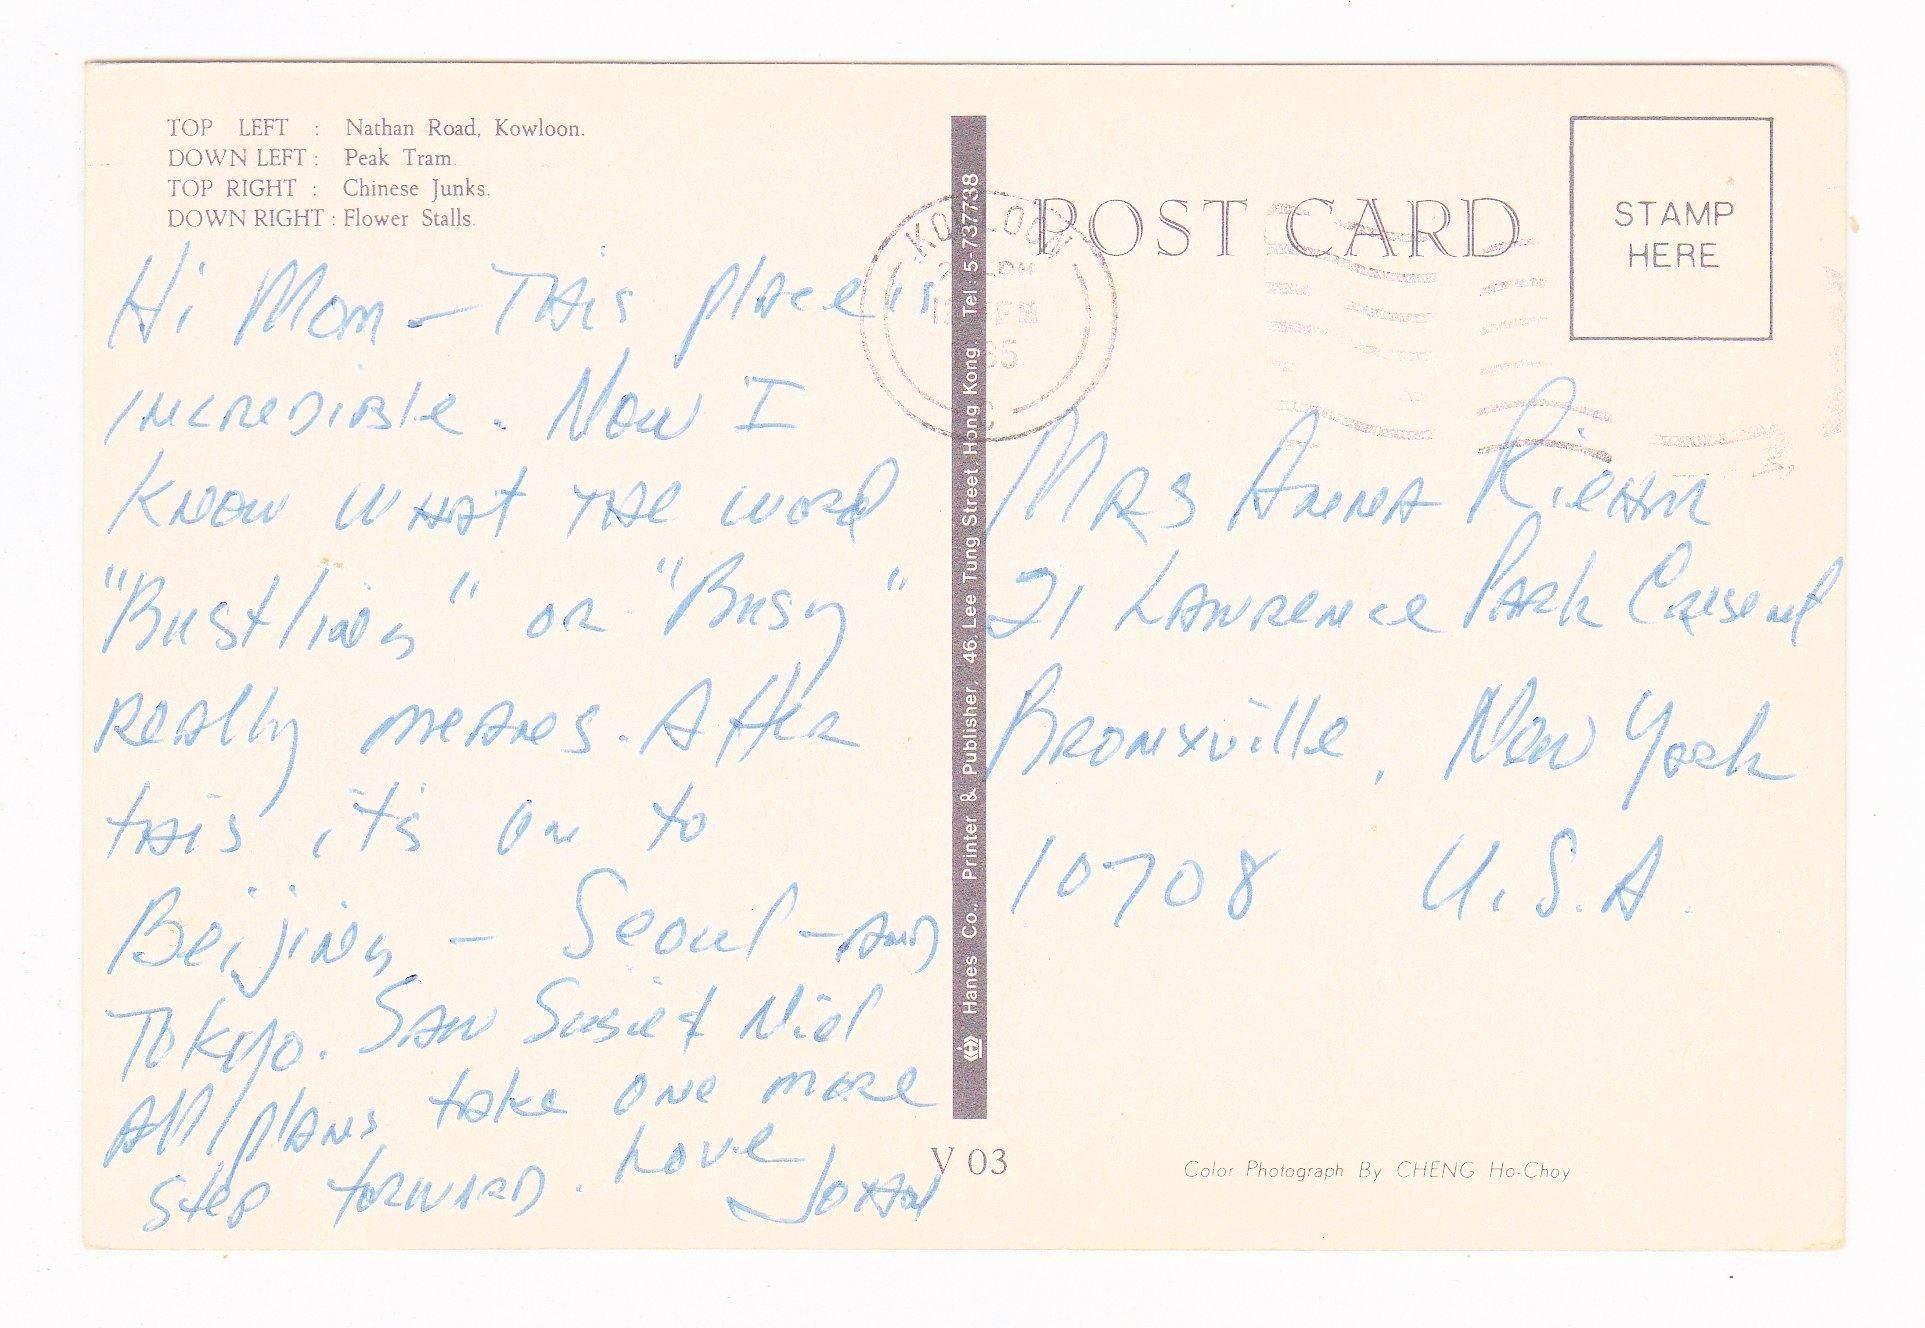 TOP LEFT : Nathan Road, Kowloon.
DOWN LEFT : Peak Tram.
TOP RIGHT : Chinese Junks.
DOWN RIGHT : Flower Stalls.
Hi Mom – This place is
incredible. Now I
know what the word
"Bustling" or "Busy"
really means. After
this it's on to
Beijing – Seoul – and
Tokyo. Saw Susie & Niel
All plans take one more
step forward. Love
John
Hanes Co., Printer & Publisher, 46, Lee Tung Street, Hong Kong. Tel: 5-737738
V 03
KOWLOON
POST CARD
STAMP
HERE
Mrs Anna
21 Lawrence Park Cresent
Bronxville, New York
10708 U.S.A.
Color Photograph By CHENG Ho-Choy